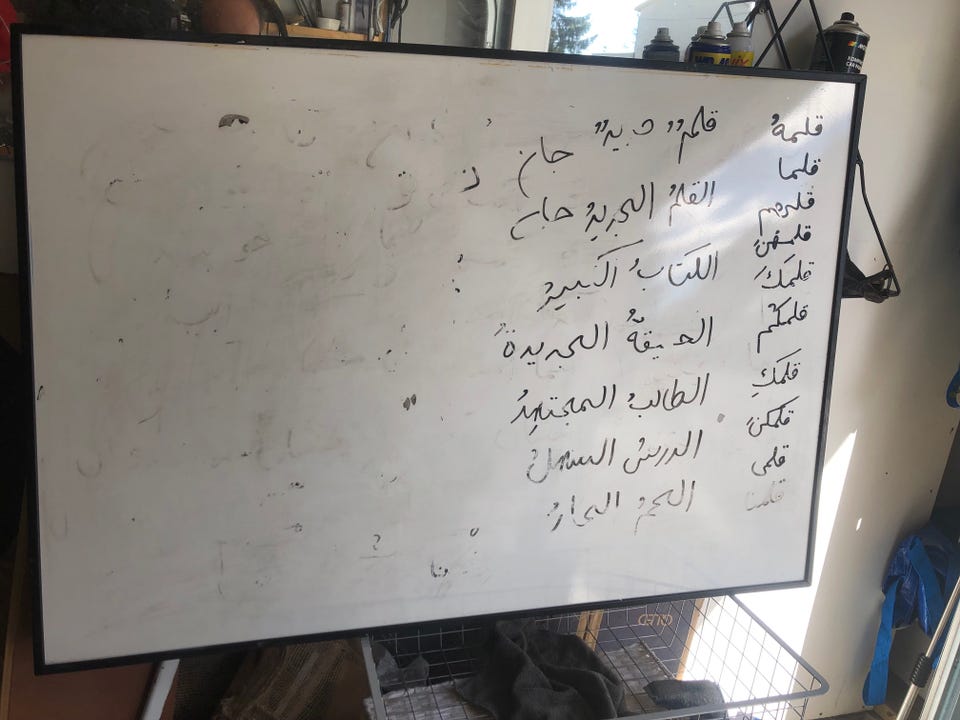 قلمهُ
قلما
قلمهم
قلمهنَّ
قلمكَ
قلمكُم
قلمكِ
قلمكنَّ
قلمي
قلمنا
قلمٌ جديدٌ جان
القلمُ الجديدُ جان
الكتابُ الكبيرُ
الجديدةُ
الطالبُ المجتهِدُ
الدرسُ السهلُ
الحارُ
QLED